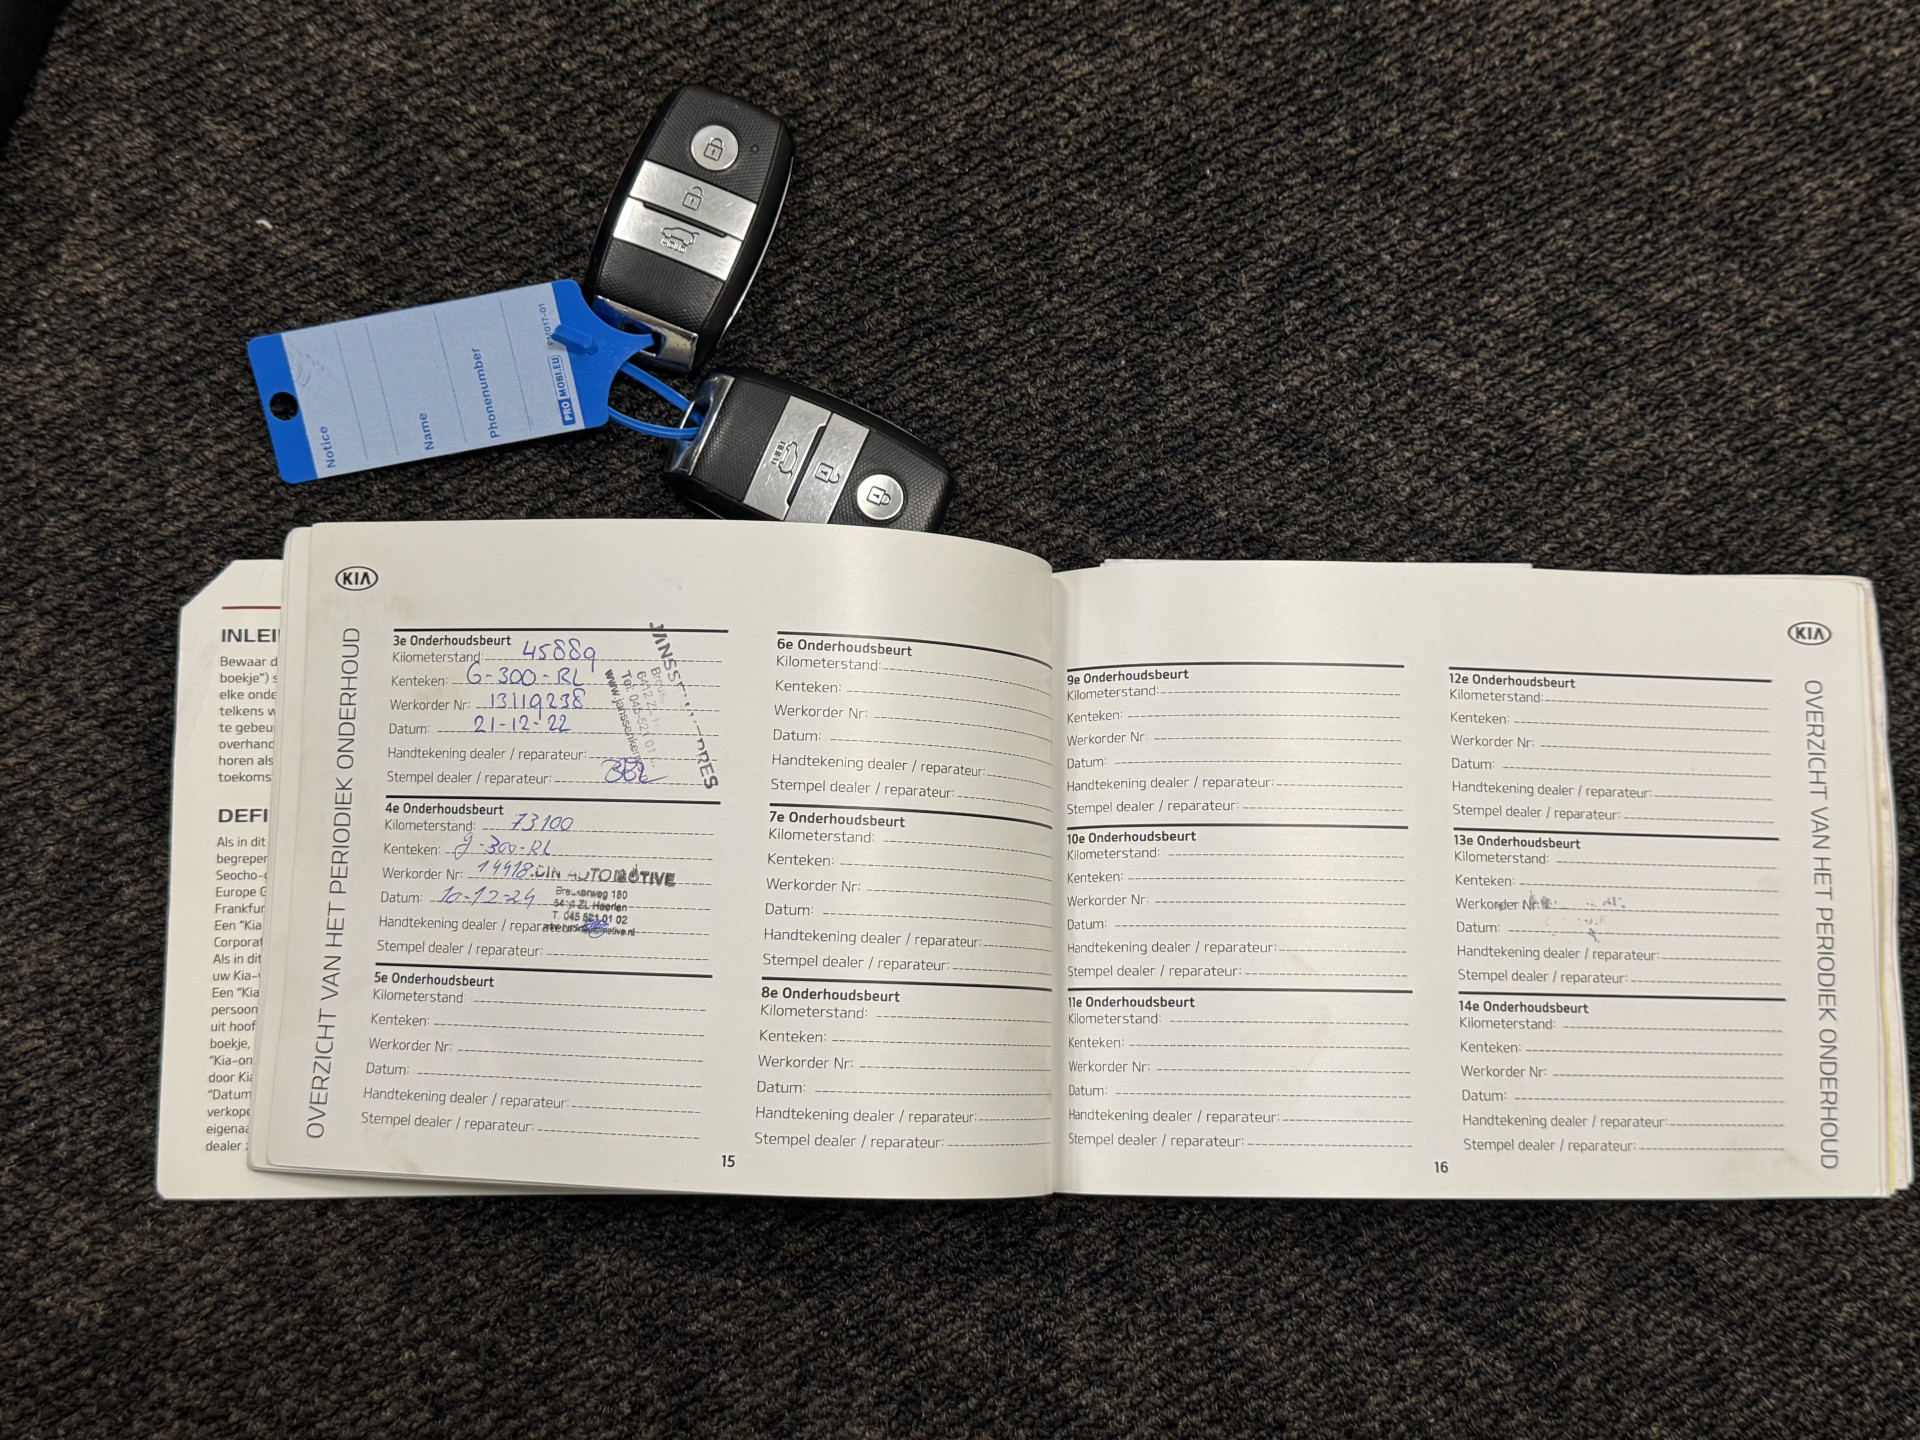 Notice
Name
Phonenumber
PROMOBI.EU
KIA
OVERZICHT VAN HET PERIODIEK ONDERHOUD
INLEI
Bewaar d
boekje")
elke onde
telkens w
te gebeu
overhand
horen als
toekoms
DEFI
Als in dit
begreper
Seocho-
Europe G
Frankfur
Een "Kia
Corporat
Als in dit
uw Kia-
Een "Kia
persoon
uit hoof
boekje,
"Kia-on
door Kia
"Datum
verkope
eigenaa
dealer
3e Onderhoudsbeurt
Kilometerstand: 45889
Kenteken: G-300-RL
Werkorder Nr: 13119238
Datum: 21-12-22
Handtekening dealer / reparateur:
Stempel dealer / reparateur:
4e Onderhoudsbeurt
Kilometerstand: 73100
Kenteken: g-300-RL
Werkorder Nr: AUTOMOTIVE
Datum: 10-12-24
180
Heerlen
T. 045 521 01 02
Handtekening dealer / reparateur:
Stempel dealer / reparateur:
5e Onderhoudsbeurt
Kilometerstand:
Kenteken:
Werkorder Nr:
Datum:
Handtekening dealer / reparateur:
Stempel dealer / reparateur:
6e Onderhoudsbeurt
Kilometerstand:
Kenteken:
Werkorder Nr:
Datum:
Handtekening dealer / reparateur:
Stempel dealer / reparateur:
7e Onderhoudsbeurt
Kilometerstand:
Kenteken:
Werkorder Nr:
Datum:
Handtekening dealer / reparateur:
Stempel dealer / reparateur:
8e Onderhoudsbeurt
Kilometerstand:
Kenteken:
Werkorder Nr:
Datum:
Handtekening dealer / reparateur:
Stempel dealer / reparateur:
15
KIA
9e Onderhoudsbeurt
Kilometerstand:
Kenteken:
Werkorder Nr:
Datum:
Handtekening dealer / reparateur:
Stempel dealer / reparateur:
10e Onderhoudsbeurt
Kilometerstand:
Kenteken:
Werkorder Nr:
Datum:
Handtekening dealer / reparateur:
Stempel dealer / reparateur:
11e Onderhoudsbeurt
Kilometerstand:
Kenteken:
Werkorder Nr:
Datum:
Handtekening dealer / reparateur:
Stempel dealer / reparateur:
12e Onderhoudsbeurt
Kilometerstand:
Kenteken:
Werkorder Nr:
Datum:
Handtekening dealer / reparateur:
Stempel dealer / reparateur:
13e Onderhoudsbeurt
Kilometerstand:
Kenteken:
Werkorder Nr:
Datum:
Handtekening dealer / reparateur:
Stempel dealer / reparateur:
14e Onderhoudsbeurt
Kilometerstand:
Kenteken:
Werkorder Nr:
Datum:
Handtekening dealer / reparateur:
Stempel dealer / reparateur:
OVERZICHT VAN HET PERIODIEK ONDERHOUD
16